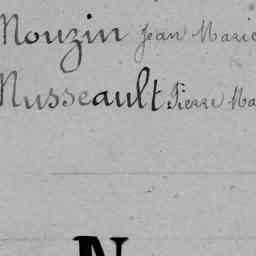 Mouzin Jean Marie
Musseault Pierre Ma
N